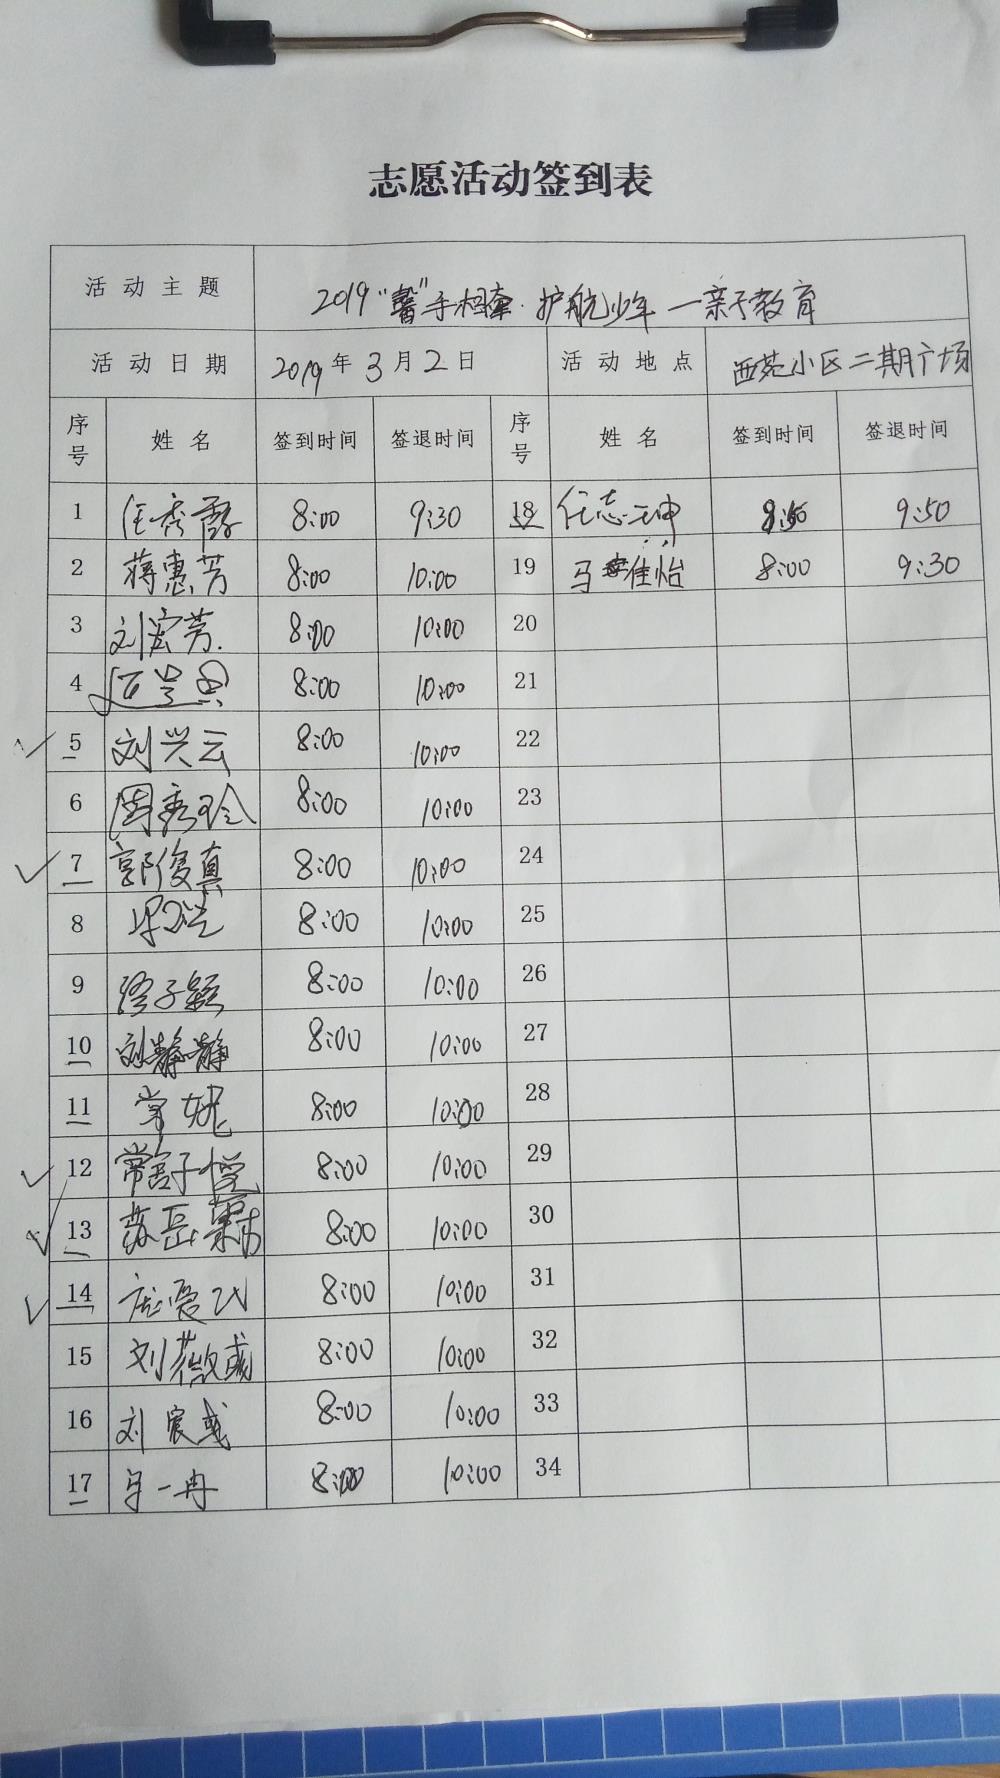 志愿活动签到表
活动主题 2019"馨"手相牵·护航少年—亲子教育
活动日期 2019年3月2日 活动地点 西苑小区二期广场
序号 姓名 签到时间 签退时间 序号 姓名 签到时间 签退时间
1 任秀霞 8:00 9:30 18 任志坤 9:50
2 蒋惠芳 8:00 10:00 19 马佳怡 8:00 9:30
3 刘宏芳 8:00 10:00 20
4 8:00 10:00 21
5 刘兴云 8:00 10:00 22
6 周秀玲 8:00 10:00 23
7 郭俊真 8:00 10:00 24
8 8:00 10:00 25
9 子颖 8:00 10:00 26
10 刘静静 8:00 10:00 27
11 常娆 8:00 10:00 28
12 常子悦 8:00 10:00 29
13 苏岳 8:00 10:00 30
14 8:00 10:00 31
15 刘薇彧 8:00 10:00 32
16 刘宸彧 8:00 10:00 33
17 一冉 8:00 10:00 34